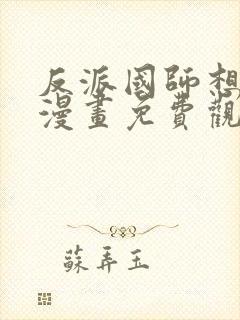 反派國師想
漫畫免費觀
蘇弄玉